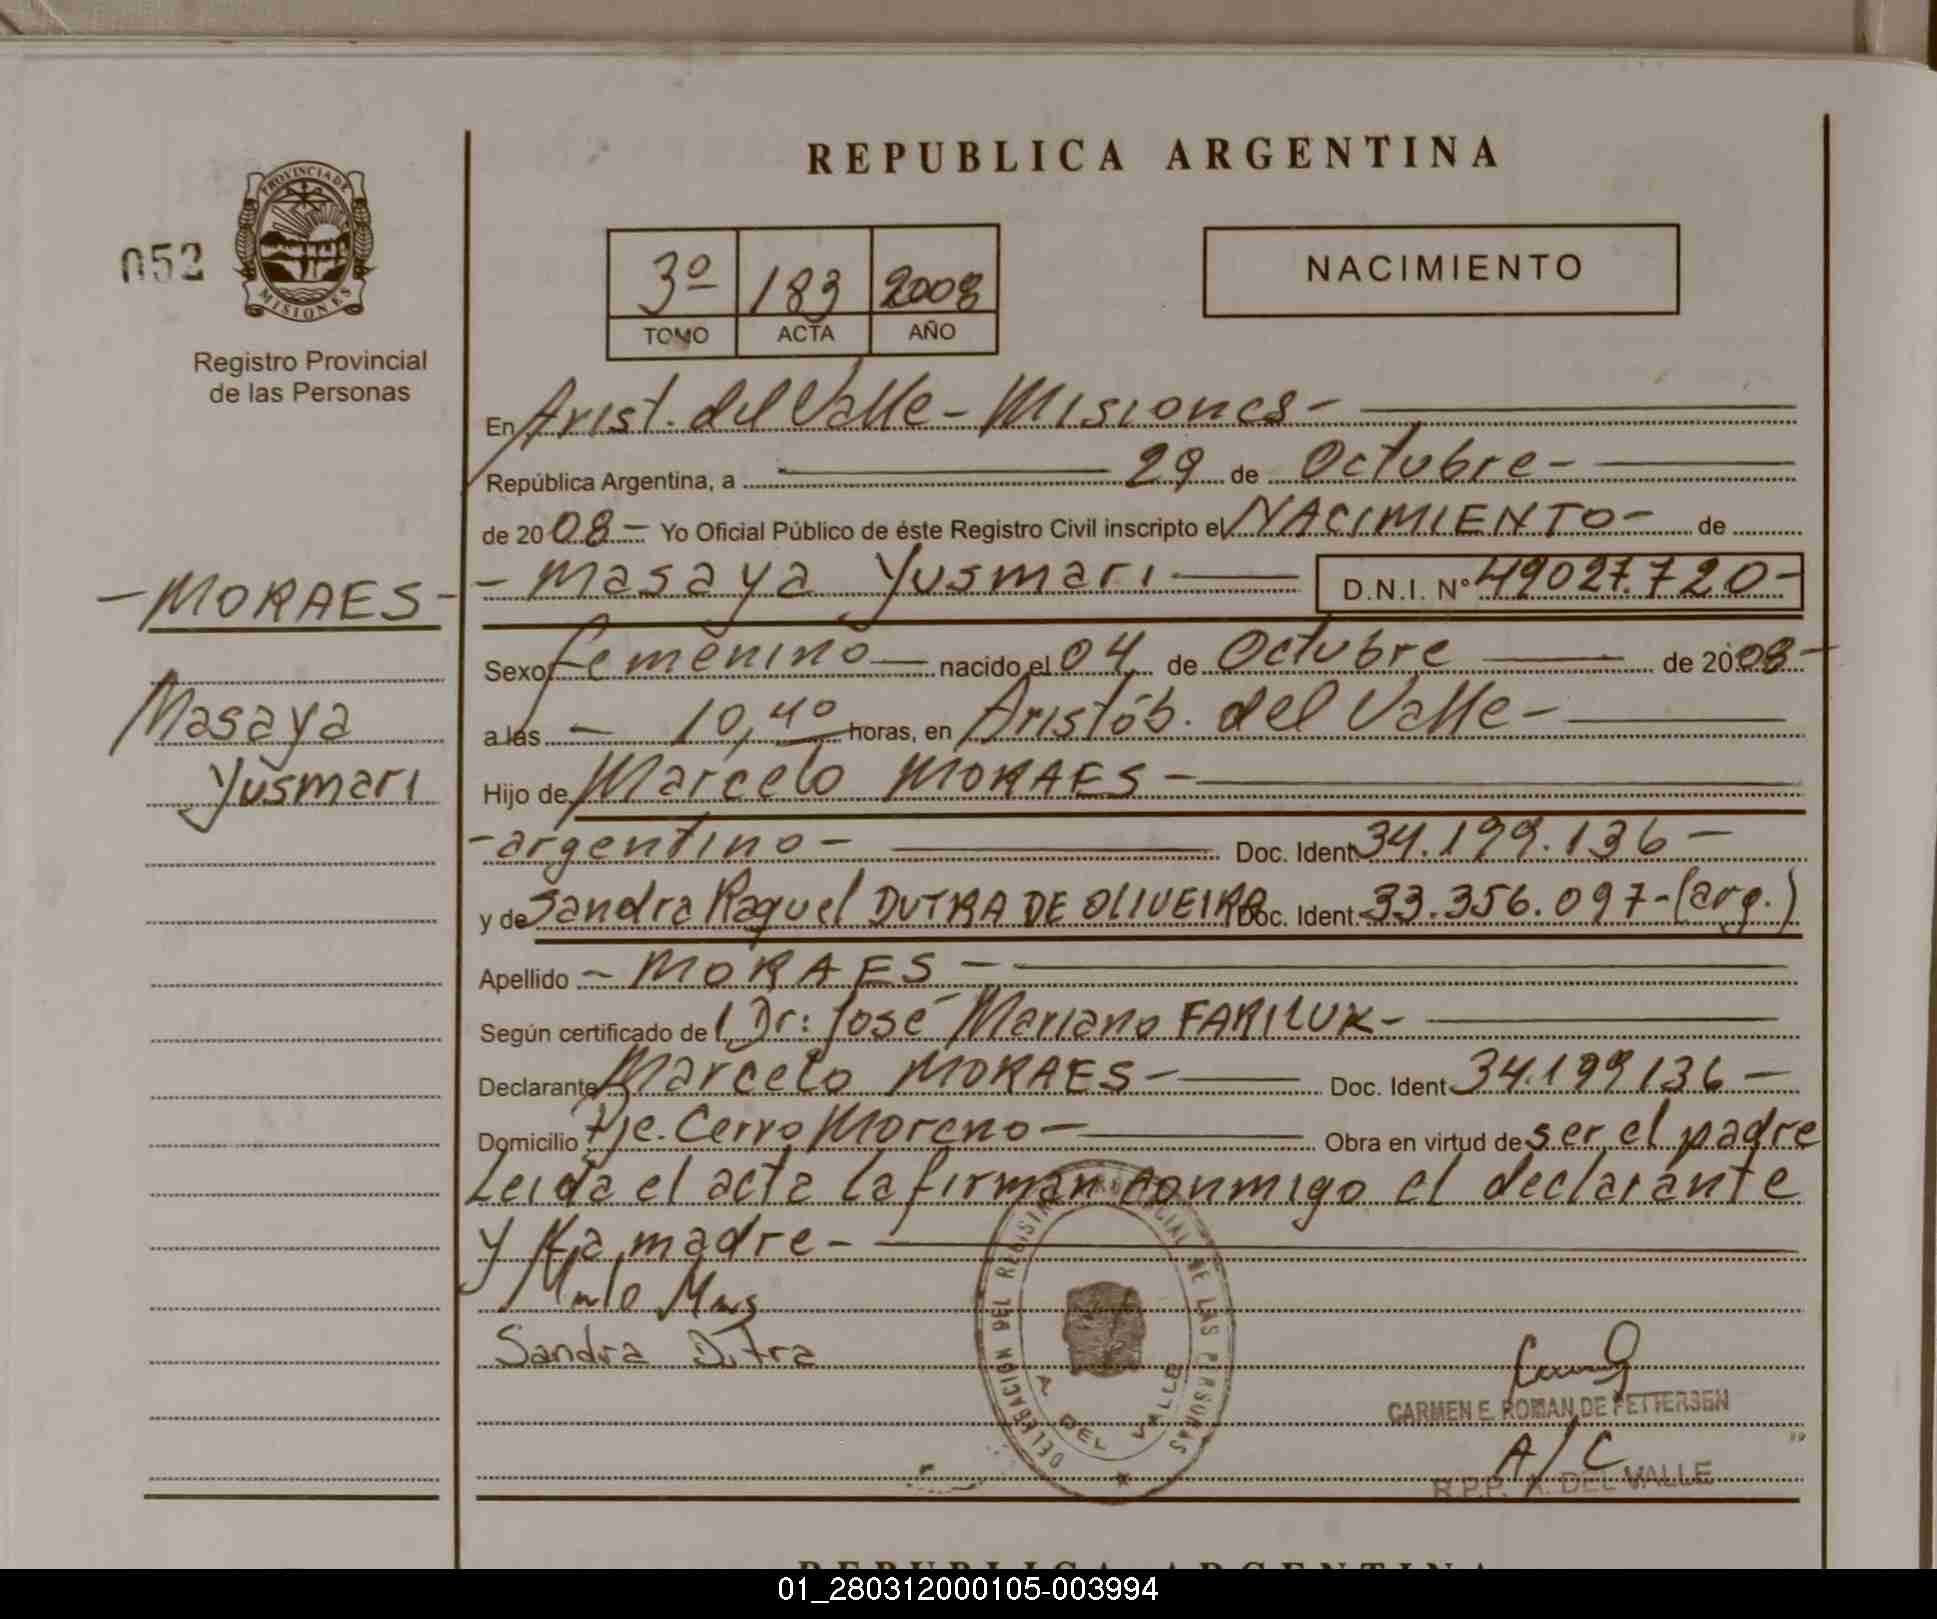 REPUBLICA ARGENTINA
052
PROVINCIA DE
MISIONES
Registro Provincial
de las Personas
3º 183 2008
TOMO ACTA AÑO
NACIMIENTO
En Arist. del Valle - Misiones -
República Argentina, a 29 de Octubre -
de 2008 - Yo Oficial Público de éste Registro Civil inscripto el NACIMIENTO - de
- MORAES -
- Masaya Yusmari D.N.I. Nº 49027.720 -
Masaya
Yusmari
Sexo femenino nacido el 04 de Octubre de 2008 -
a las - 10,40 horas, en Aristób. del Valle -
Hijo de Marcelo MORAES -
- argentino - Doc. Ident. 34.199.136 -
y de Sandra Raquel DUTRA DE OLIVEIRA Doc. Ident. 33.356.097 - (arg.)
Apellido - MORAES -
Según certificado de l Dr: José Mariano FARILUK -
Declarante Marcelo MORAES - Doc. Ident 34.199136 -
Domicilio Pje. Cerro Moreno - Obra en virtud de ser el padre
Leida el acta la firman conmigo el declarante
y la madre -
Sandra Dutra
DELEGACION DEL REGISTRO PROVINCIAL DE LAS PERSONAS
A. DEL VALLE
CARMEN E. ROMAN DE FETTERSEN
A/C
R.P.P. A. DEL VALLE
REPUBLICA ARGENTINA
01_280312000105-003994